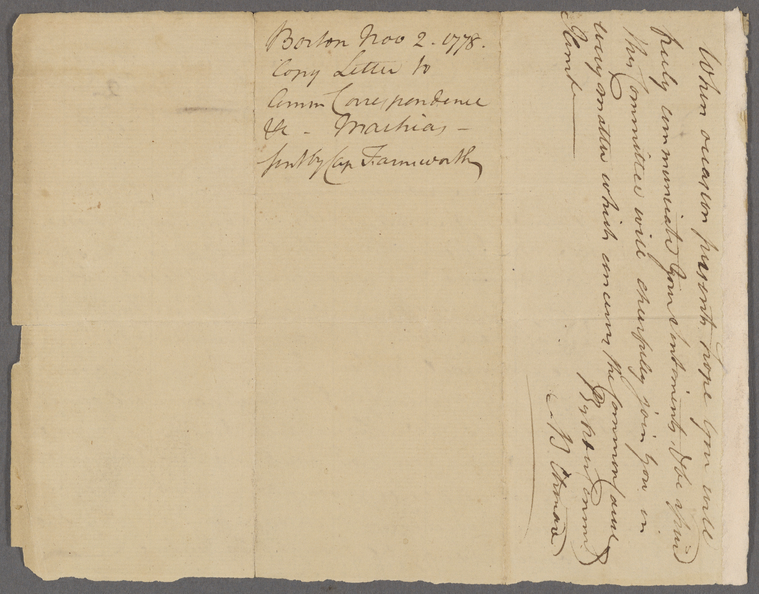 Boston Nov 2. 1778.
Copy Letter to
Comm Correspondence
&c - Machias -
sent by Cap Farnworth
When occasion presents hope you will
freely communicate your Sentiments & be assured
this Committee will chearfully join you in
every matter which concern the Common Cause